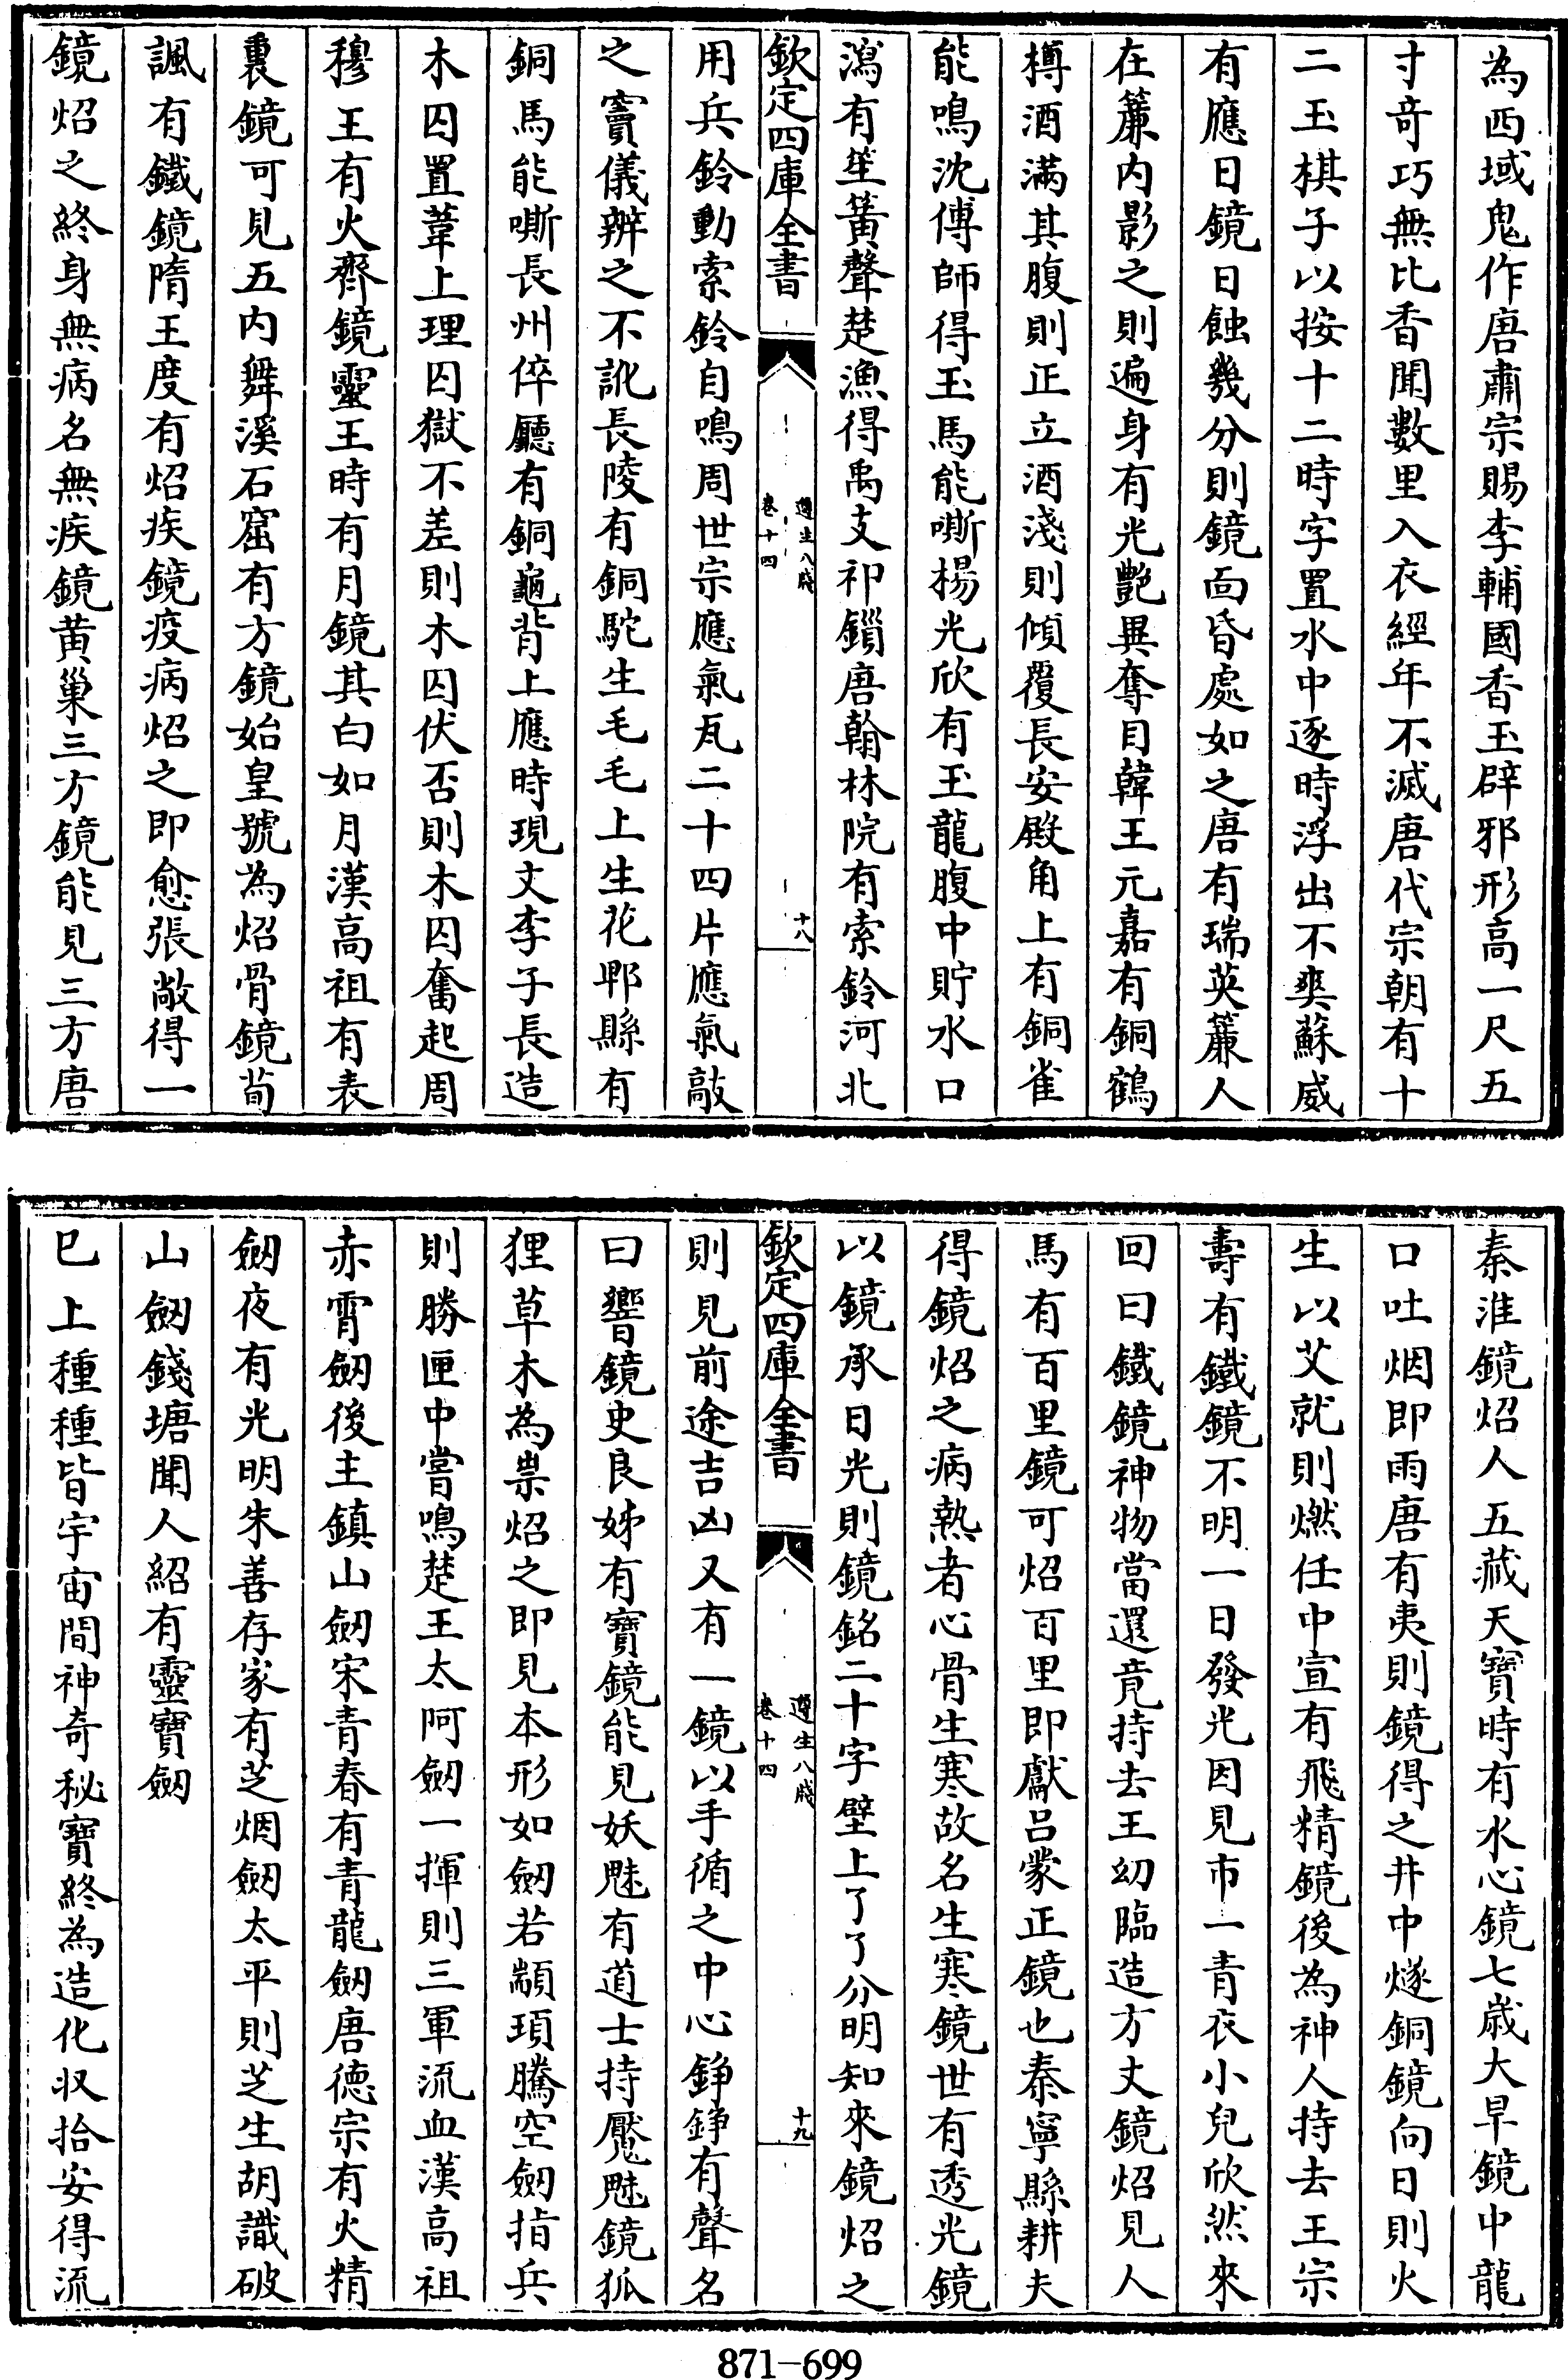 為西域鬼作唐肅宗賜李輔國香玉辟邪形高一尺五
寸竒巧無比香聞數里入衣經年不滅唐代宗朝有十
二玉棋子以按十二時字置水中逐時浮出不爽蘇威
有應日鏡日蝕幾分則鏡面昏處如之唐有瑞英簾人
在簾内影之則遍身有光艷異奪目韓王元嘉有銅鶴
樽酒滿其腹則正立酒淺則傾覆長安殿角上有銅雀
能鳴沈傅師得玉馬能嘶楊光欣有玉龍腹中貯水口
瀉有笙簧聲楚漁得禹支祁鎻唐翰林院有索鈴河北
欽定四庫全書
遵生八牋
卷十四
十八
用兵鈴動索鈴自鳴周世宗應氣瓦二十四片應氣敲
之竇儀辨之不訛長陵有銅駝生毛毛上生花鄲縣有
銅馬能嘶長州倅廳有銅龜背上應時現文李子長造
木囚置葦上理囚獄不差則木囚伏否則木囚奮起周
穆王有火齊鏡靈王時有月鏡其白如月漢高祖有表
裏鏡可見五内舞溪石窟有方鏡始皇號為炤骨鏡荀
諷有鐵鏡隋王度有炤疾鏡疫病炤之即愈張敞得一
鏡炤之終身無病名無疾鏡黄巢三方鏡能見三方唐
秦淮鏡炤人五藏天寶時有水心鏡七歳大旱鏡中龍
口吐烟即雨唐有夷則鏡得之井中燧銅鏡向日則火
生以艾就則燃任中宣有飛精鏡後為神人持去王宗
壽有鐵鏡不明一日發光因見市一青衣小兒欣然來
回曰鐵鏡神物當還竟持去王幼臨造方丈鏡炤見人
馬有百里鏡可炤百里即獻呂蒙正鏡也秦寧縣耕夫
得鏡炤之病熱者心骨生寒故名生寒鏡世有透光鏡
以鏡承日光則鏡銘二十字壁上了了分明知來鏡炤之
欽定四庫全書
遵生八牋
卷十四
十九
則見前途吉凶又有一鏡以手循之中心錚錚有聲名
曰響鏡史良姊有寶鏡能見妖魅有道士持魘魅鏡狐
狸草木為祟炤之即見本形如劒若顓頊騰空劒指兵
則勝匣中嘗鳴楚王太阿劒一揮則三軍流血漢高祖
赤霄劒後主鎮山劒宋青春有青龍劒唐德宗有火精
劒夜有光明朱善存家有芝烟劒太平則芝生胡識破
山劒錢塘聞人紹有靈寶劒
巳上種種皆宇宙間神奇秘寶終為造化収拾安得流
871-699